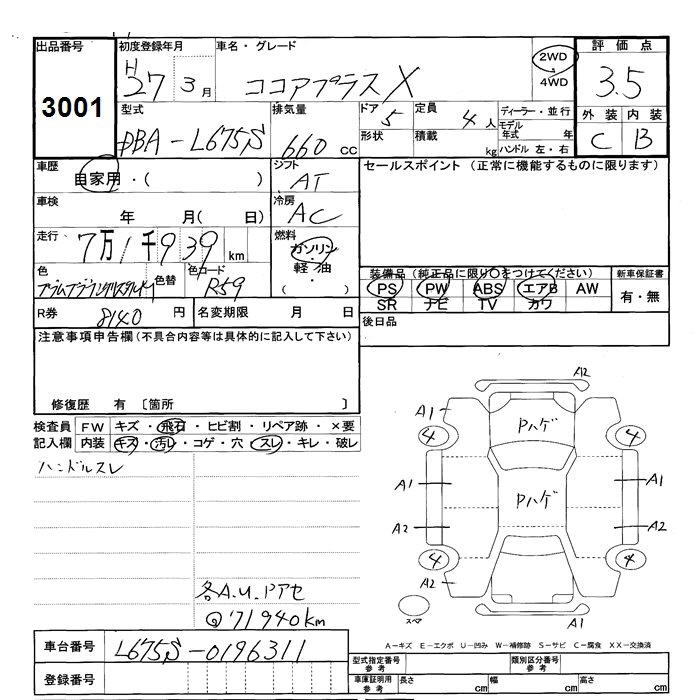 出品番号
3001
初度登録年月
H
27 3月
車名・グレード
ココアプラス X
2WD
4WD
評価点
3.5
外装 内装
C B
型式
DBA-L675S
排気量
660 cc
ドア 5
形状
定員 4人
積載 kg
ディーラー・並行
モデル年式 年
ハンドル 左・右
車歴
自家用・( )
シフト
AT
セールスポイント (正常に機能するものに限ります)
車検
年 月( 日)
冷房
AC
走行
7万1千939km
燃料
ガソリン・
軽油・
( )
色
色替
色コード
R59
装備品 (純正品に限り○をつけてください)
PS PW ABS エアB AW
SR ナビ TV カワ
新車保証書
有・無
R券 8140円
名変期限 月 日
後日品
注意事項申告欄(不具合内容等は具体的に記入して下さい)
修復歴 有 〔箇所 〕
検査員記入欄
FW キズ・飛石・ヒビ割・リペア跡・×要
内装 キズ・汚レ・コゲ・穴・スレ・キレ・破レ
ハンドルスレ
各A.U.Pアセ
@'71940km
A2
A1
Pハゲ
4 4
A1 Pハゲ A1
A2 A2
4 4
A2
スペア
A1
A-キズ E-エクボ U-凹み W-補修跡 S-サビ C-腐食 XX-交換済
車台番号
L675S-0196311
登録番号
型式指定番号 参考
類別区分番号 参考
車庫証明用 参考
長さ cm 幅 cm 高さ cm